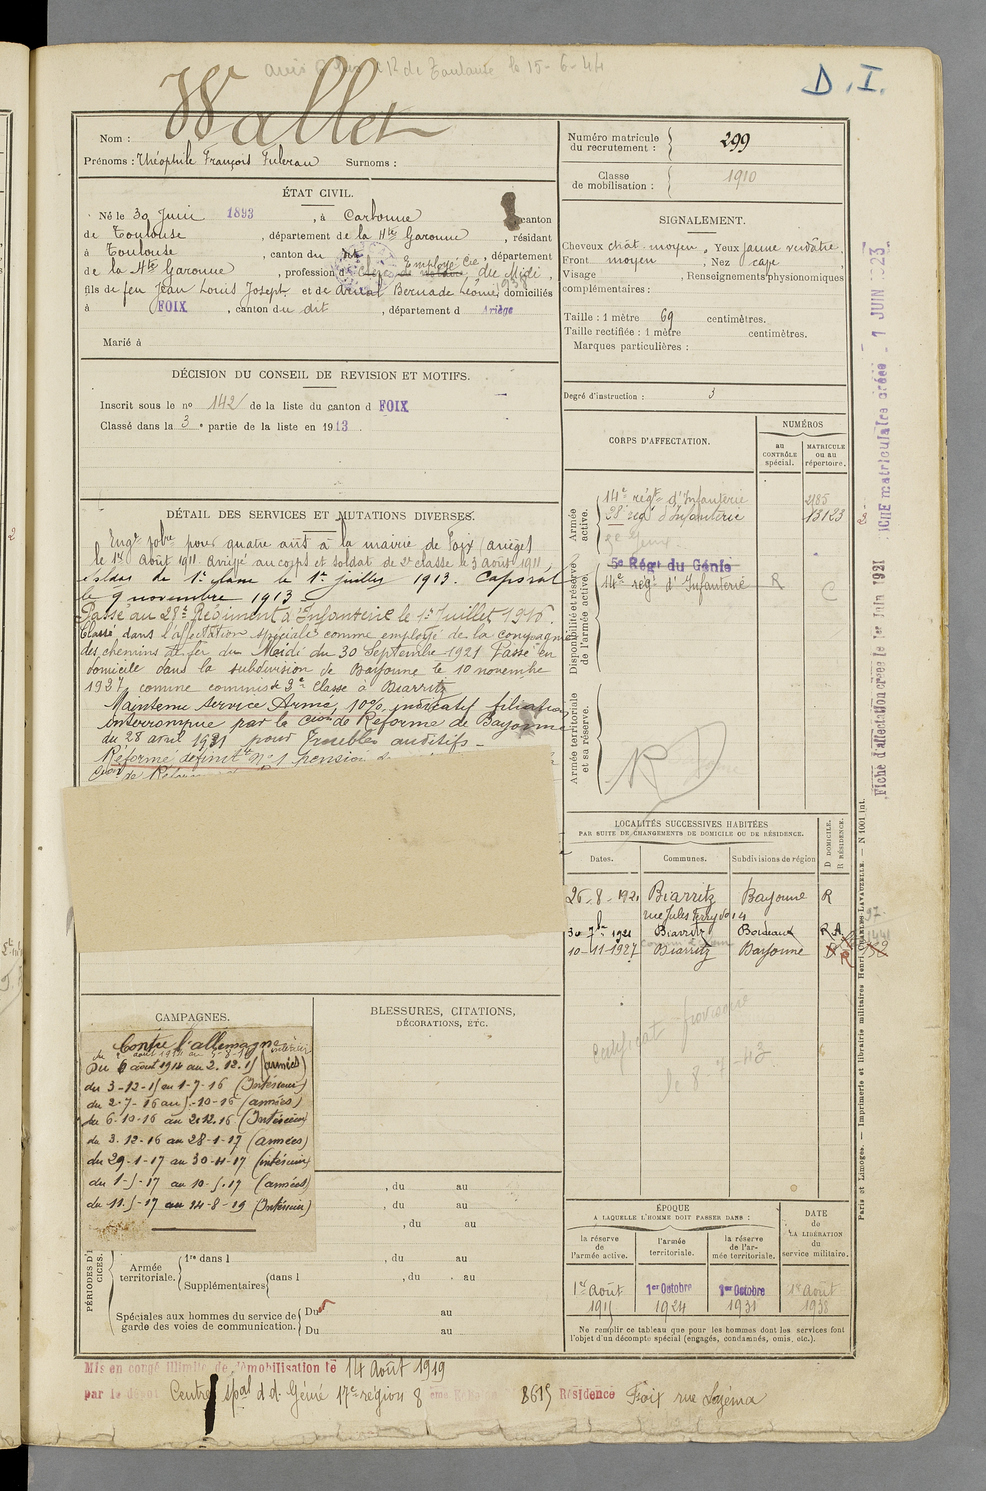 D.I.
Wallet
Nom :
Prénoms : Théophile François Fulcran Surnoms :
Numéro matricule du recrutement : 299
Classe de mobilisation : 1910
ÉTAT CIVIL.
Né le 30 Juin 1893, à Carbonne, canton
de Toulouse, département de la Hte Garonne, résidant
à Toulouse, canton du dit, département
de la Hte Garonne, profession d Employé Cie du Midi
clerc de notaire
1938
fils de feu Jean Louis Joseph et de Bernade Léonie, domiciliés
à FOIX, canton du dit, département d Ariège
Marié à
SIGNALEMENT.
Cheveux chât-moyen, Yeux jaune verdâtre
Front moyen, Nez cave
Visage, Renseignements physionomiques
complémentaires :
Taille : 1 mètre 69 centimètres.
Taille rectifiée : 1 mètre centimètres.
Marques particulières :
Degré d'instruction : 3
DÉCISION DU CONSEIL DE REVISION ET MOTIFS.
Inscrit sous le no 142 de la liste du canton d FOIX
Classé dans la 3e partie de la liste en 1913.
DÉTAIL DES SERVICES ET MUTATIONS DIVERSES.
Engé pour quatre ans à la mairie de Foix (Ariège)
le 1er Août 1911 Arrivé au corps et soldat de 2e classe le 3 Août 1911,
soldat de 1e classe le 1er juillet 1913. Caporal
le 9 novembre 1913.
Passé au 28e Régiment d'Infanterie le 1er Juillet 1916.
Classé dans l'affectation spéciale comme employé de la compagnie
des chemins de fer du Midi du 30 Septembre 1921 Passé en
domicile dans la subdivision de Bayonne le 10 novembre
1927 comme commis de 3e classe à Biarritz
Maintenu Service Armé, 10% indicatif filiation
interrompue par la Cion de Réforme de Bayonne
du 28 avril 1931 pour Troubles auditifs -
Réformé définitt No 1 pension
CORPS D'AFFECTATION.
NUMÉROS
au CONTRÔLE spécial.
MATRICULE ou au répertoire.
Armée active.
14e régt d'Infanterie 2185
28e régt d'Infanterie 13123
Disponibilité et réserve de l'armée active.
5e Régt du Génie
14e régt d'Infanterie R C
Armée territoriale et sa réserve.
RD
Fiche d'affectation créée le 1er Juin 1921
FICHE matriculaire créée - 1 JUIN 1923
LOCALITÉS SUCCESSIVES HABITÉES
PAR SUITE DE CHANGEMENTS DE DOMICILE OU DE RÉSIDENCE.
Dates. Communes. Subdivisions de région D DOMICILE. R RÉSIDENCE.
26-8-1921 Biarritz Bayonne R
rue Jules Ferry
30 7bre 1921 Biarritz Bordeaux R A
10-11-1927 Biarritz Bayonne
Certificat provisoire
le 8-7-43
CAMPAGNES.
Contre l'allemagne
Du 6 août 1914 au 2.12.15 (armées)
du 3-12-15 au 1-7-16 (Intérieur)
du 2-7-16 au 5-10-16 (armées)
du 6-10-16 au 2.12.16 (Intérieur)
du 3.12-16 au 28-1-17 (armées)
du 29-1-17 au 30-4-17 (intérieur)
du 1-5-17 au 10-5-17 (armées)
du 11-5-17 au 14-8-19 (Intérieur)
BLESSURES, CITATIONS,
DÉCORATIONS, ETC.
, du au
, du au
, du au
Armée territoriale.
1re dans l , du au
Supplémentaires dans l , du au
Spéciales aux hommes du service de garde des voies de communication.
Du au
Du au
ÉPOQUE
A LAQUELLE L'HOMME DOIT PASSER DANS :
la réserve de l'armée active.
l'armée territoriale.
la réserve de l'armée territoriale.
DATE de LA LIBÉRATION du service militaire.
1er Août 1915
1er Octobre 1924
1er Octobre 1931
1er Août 1938
Ne remplir ce tableau que pour les hommes dont les services font
l'objet d'un décompte spécial (engagés, condamnés, omis, etc.).
Paris et Limoges. — Imprimerie et librairie militaires Henri CHARLES-LAVAUZELLE. — N 1001 int.
Mis en congé illimité de démobilisation le 14 Août 1919
par le dépôt Centre spal d d. Génie 17e région 8 8615 Résidence Foix rue